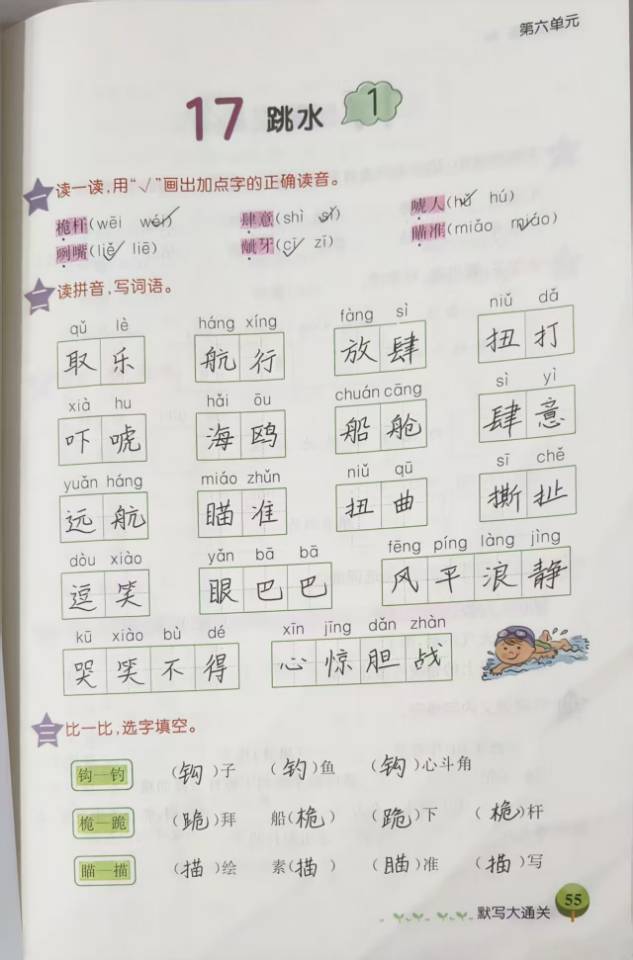 第六单元
17 跳水 1
一 读一读,用“√”画出加点字的正确读音。
桅杆(wēi wéi) 肆意(shì sì) 唬人(hǔ hú)
咧嘴(liě liē) 龇牙(cī zī) 瞄准(miǎo miáo)
二 读拼音,写词语。
qǔ lè háng xíng fàng sì niǔ dǎ
取乐 航行 放肆 扭打
xià hu hǎi ōu chuán cāng sì yì
吓唬 海鸥 船舱 肆意
yuǎn háng miáo zhǔn niǔ qū sī chě
远航 瞄准 扭曲 撕扯
dòu xiào yǎn bā bā fēng píng làng jìng
逗笑 眼巴巴 风平浪静
kū xiào bù dé xīn jīng dǎn zhàn
哭笑不得 心惊胆战
三 比一比,选字填空。
钩—钓 (钩)子 (钓)鱼 (钩)心斗角
桅—跪 (跪)拜 船(桅) (跪)下 (桅)杆
瞄—描 (描)绘 素(描) (瞄)准 (描)写
默写大通关 55